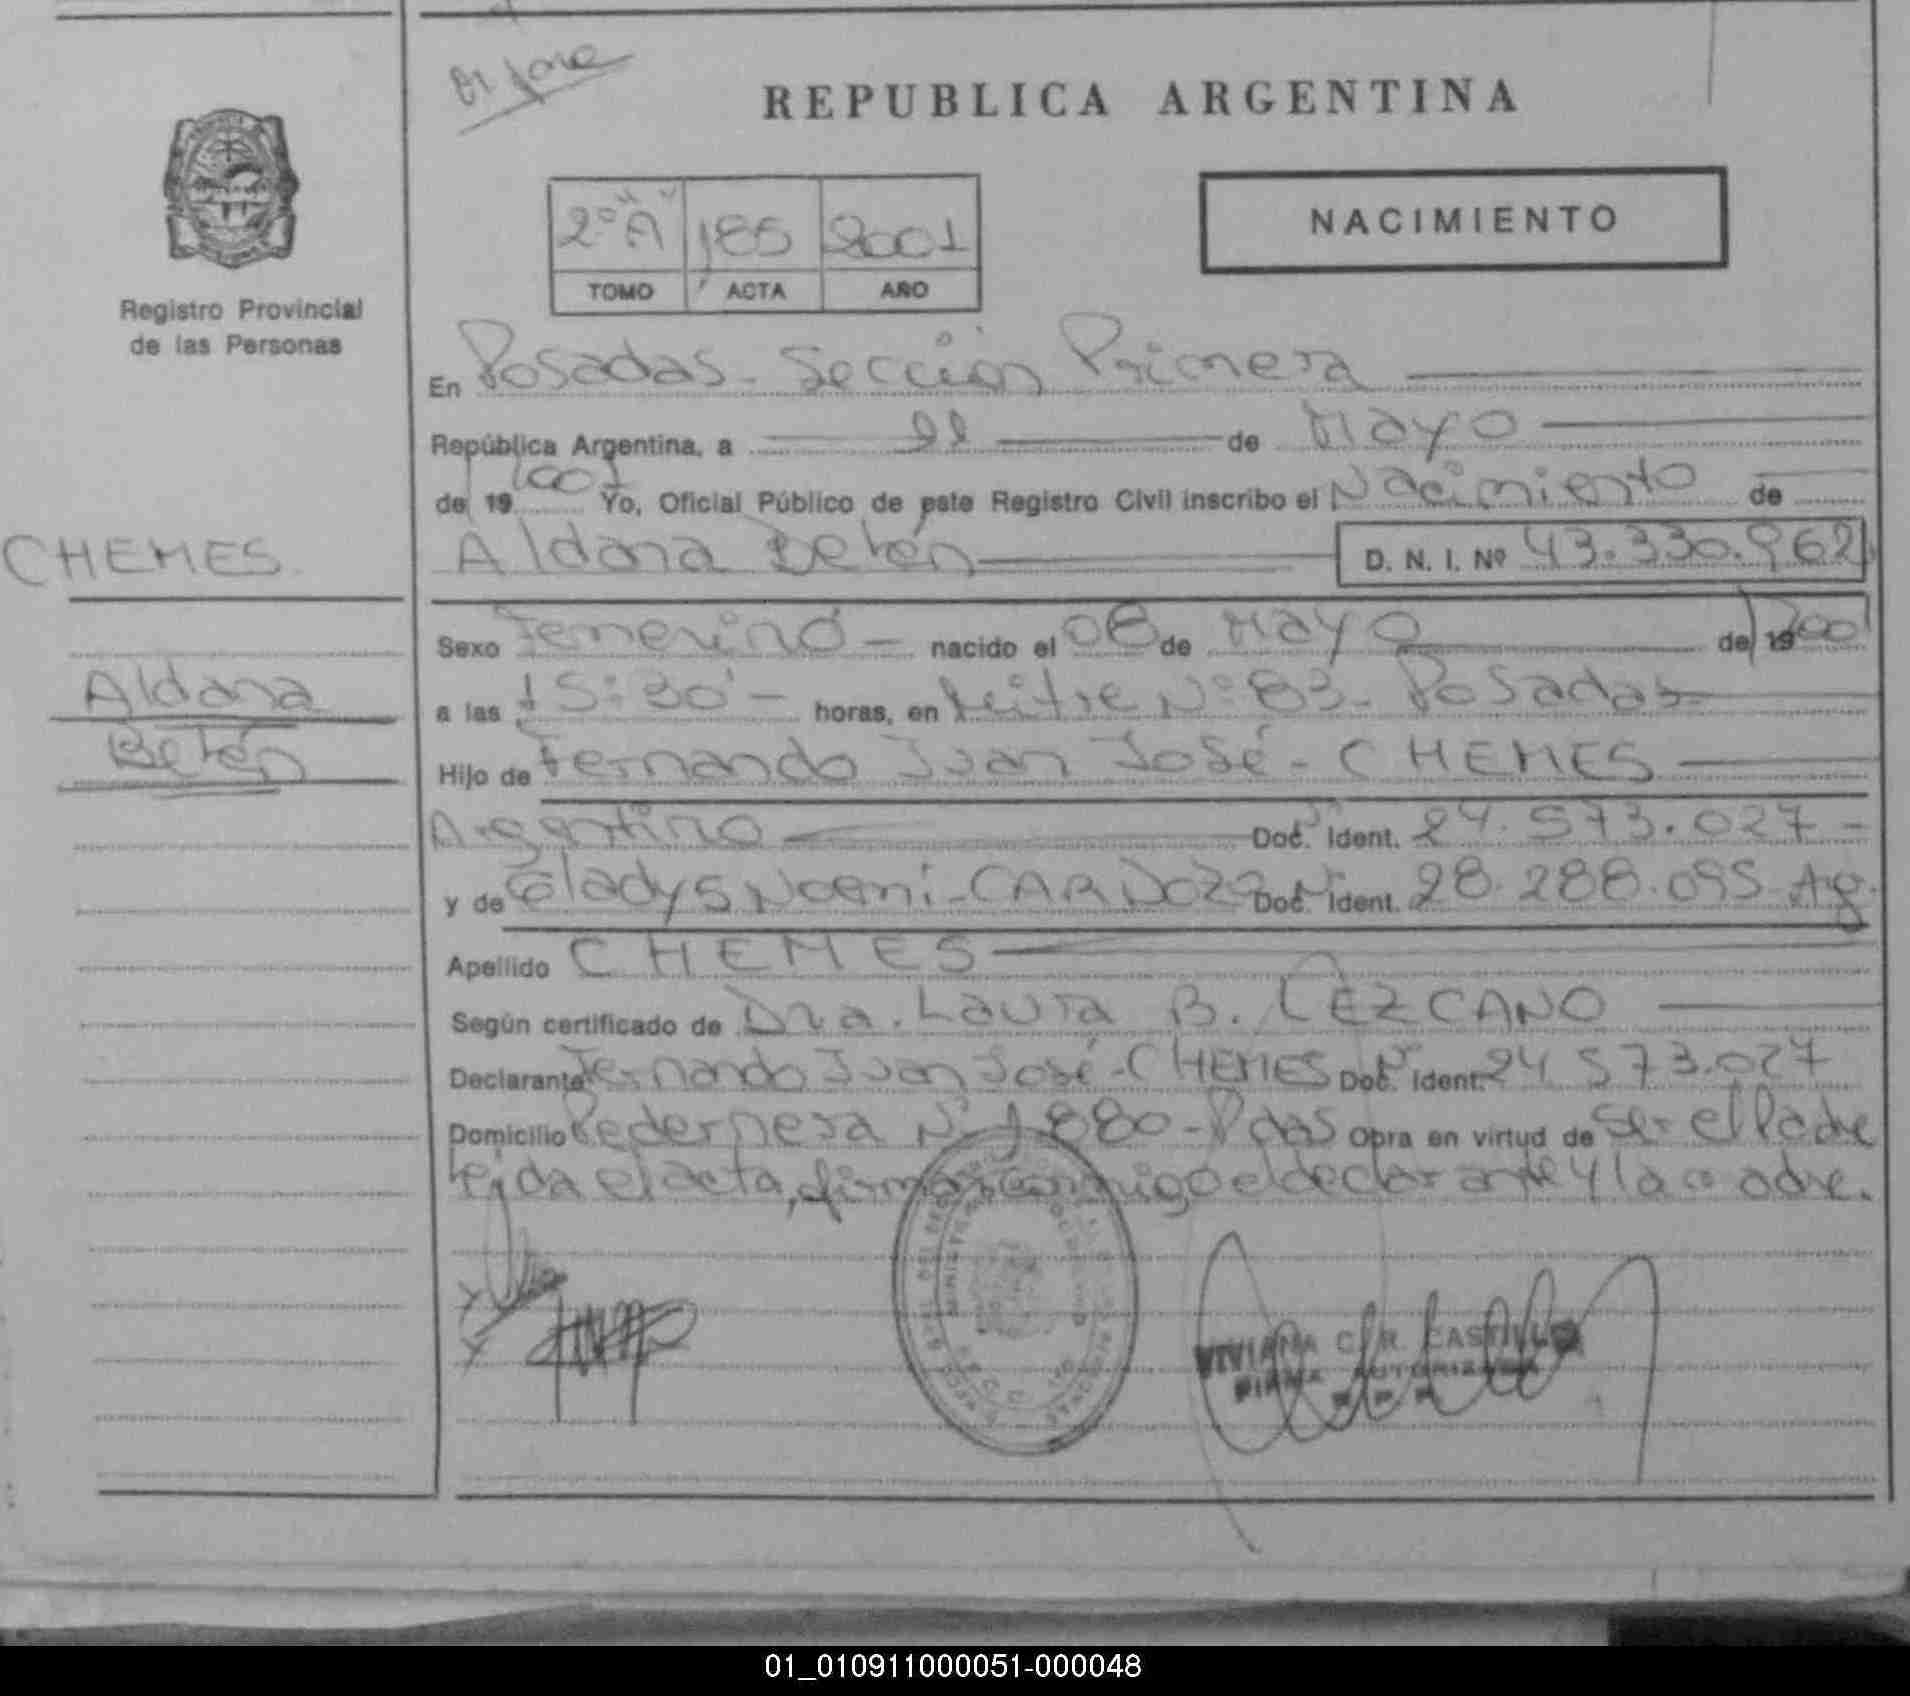 REPUBLICA ARGENTINA
NACIMIENTO
2º "A" 185 2001
TOMO ACTA AÑO
Registro Provincial
de las Personas
En Posadas - Sección Primera
República Argentina, a 11 de Mayo
de 19 2001 Yo, Oficial Público de este Registro Civil inscribo el Nacimiento de
Aldana Belén D. N. I. Nº 43.330.962
CHEMES
Aldana
Belén
Sexo Femenino - nacido el 08 de Mayo de 19 2001
a las 15:30' - horas, en Mitre Nº 83 - Posadas
Hijo de Fernando Juan José - CHEMES
Argentino Doc. Nº Ident. 24.573.027 -
y de Gladys Noemi - CARDOZO Doc. Nº Ident. 28.288.095 Ag.
Apellido CHEMES
Según certificado de Dra. Laura B. LEZCANO
Declarante Fernando Juan José - CHEMES Doc. Nº Ident. 24.573.027
Domicilio Pedernera Nº 1880 - Pdas Obra en virtud de ser el Padre
Leida el acta, firman conmigo el declarante y la madre.
VIVIANA C. R. CASTILLO
FIRMA AUTORIZADA
01_010911000051-000048